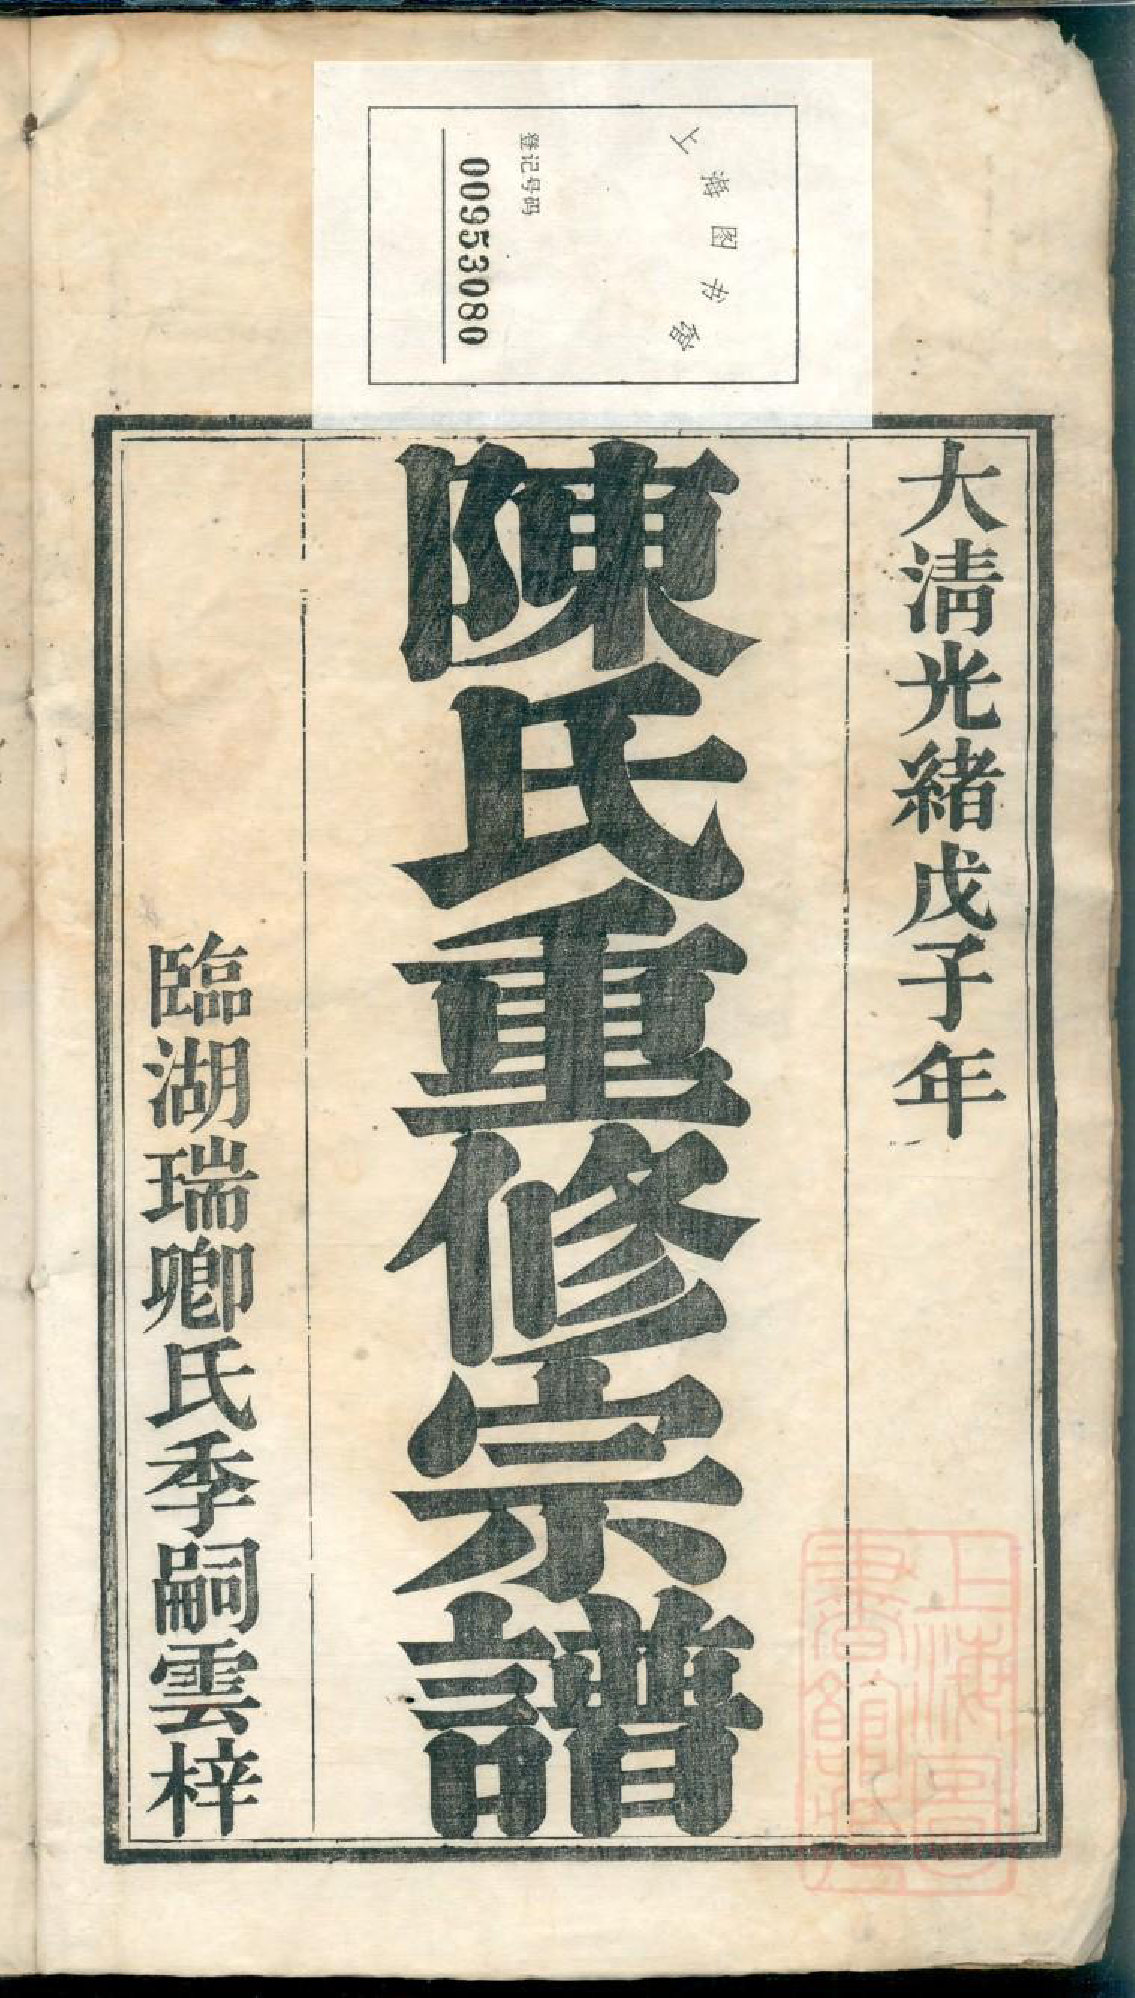 上海图书馆
登记号码
00953080
大清光緒戊子年
陳氏重修宗譜
臨湖瑞卿氏季嗣雲梓
上海圖
書館藏